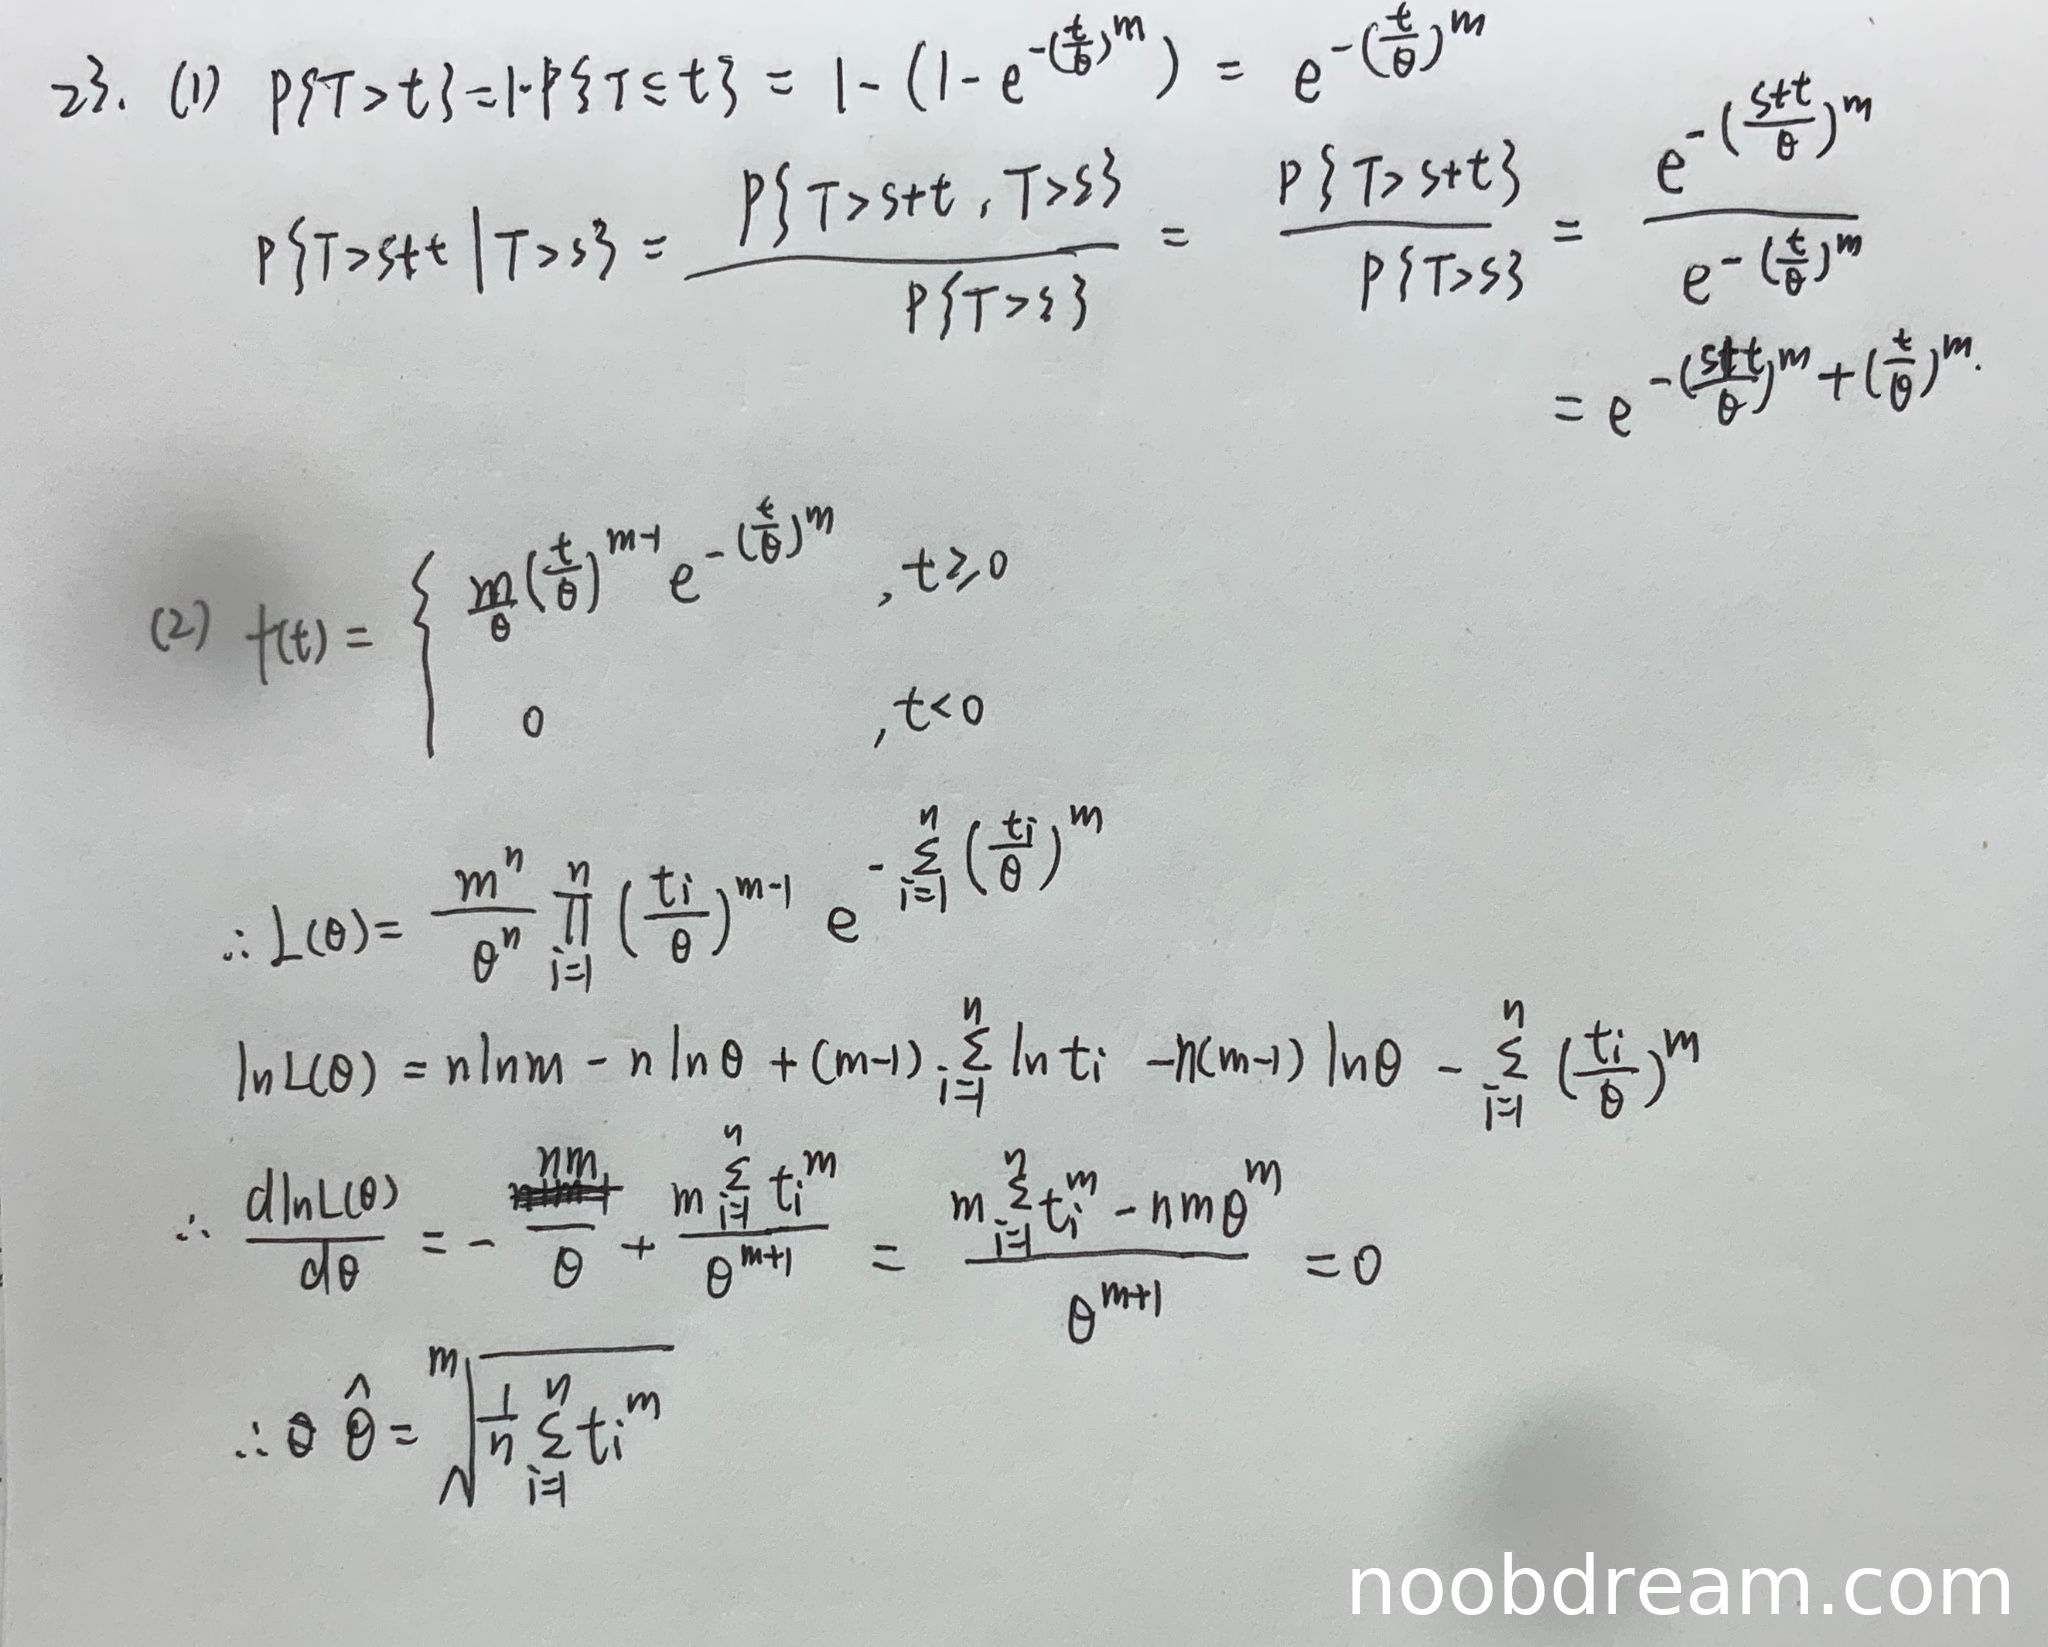 23. (1) P{T>t}=1-P{T≤t} = 1-(1-e^{-(t/θ)^m}) = e^{-(t/θ)^m}
P{T>s+t|T>s} = P{T>s+t, T>s}/P{T>s} = P{T>s+t}/P{T>s} = e^{-((s+t)/θ)^m}/e^{-(t/θ)^m}
= e^{-((s+t)/θ)^m+(t/θ)^m}.
(2) f(t) = { m/θ (t/θ)^{m-1} e^{-(t/θ)^m} , t≥0
0 , t<0
∴ L(θ) = m^n/θ^n ∏_{i=1}^n (ti/θ)^{m-1} e^{-∑_{i=1}^n (ti/θ)^m}
lnL(θ) = nlnm - nlnθ + (m-1)·∑_{i=1}^n ln ti - n(m-1) lnθ - ∑_{i=1}^n (ti/θ)^m
∴ dlnL(θ)/dθ = - nm/θ + m∑_{i=1}^n ti^m/θ^{m+1} = (m∑_{i=1}^n ti^m - nmθ^m)/θ^{m+1} = 0
∴ θ θ̂ = ^m√(1/n ∑_{i=1}^n ti^m)
noobdream.com